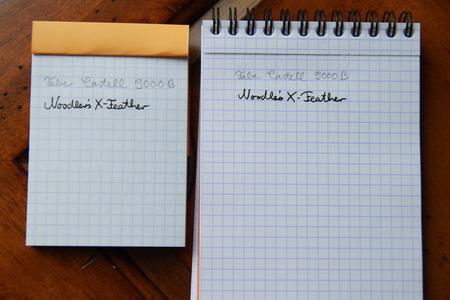 Faber Castell 9000 B
Noodler's X-Feather
Faber Castell 9000 B
Noodler's X-Feather